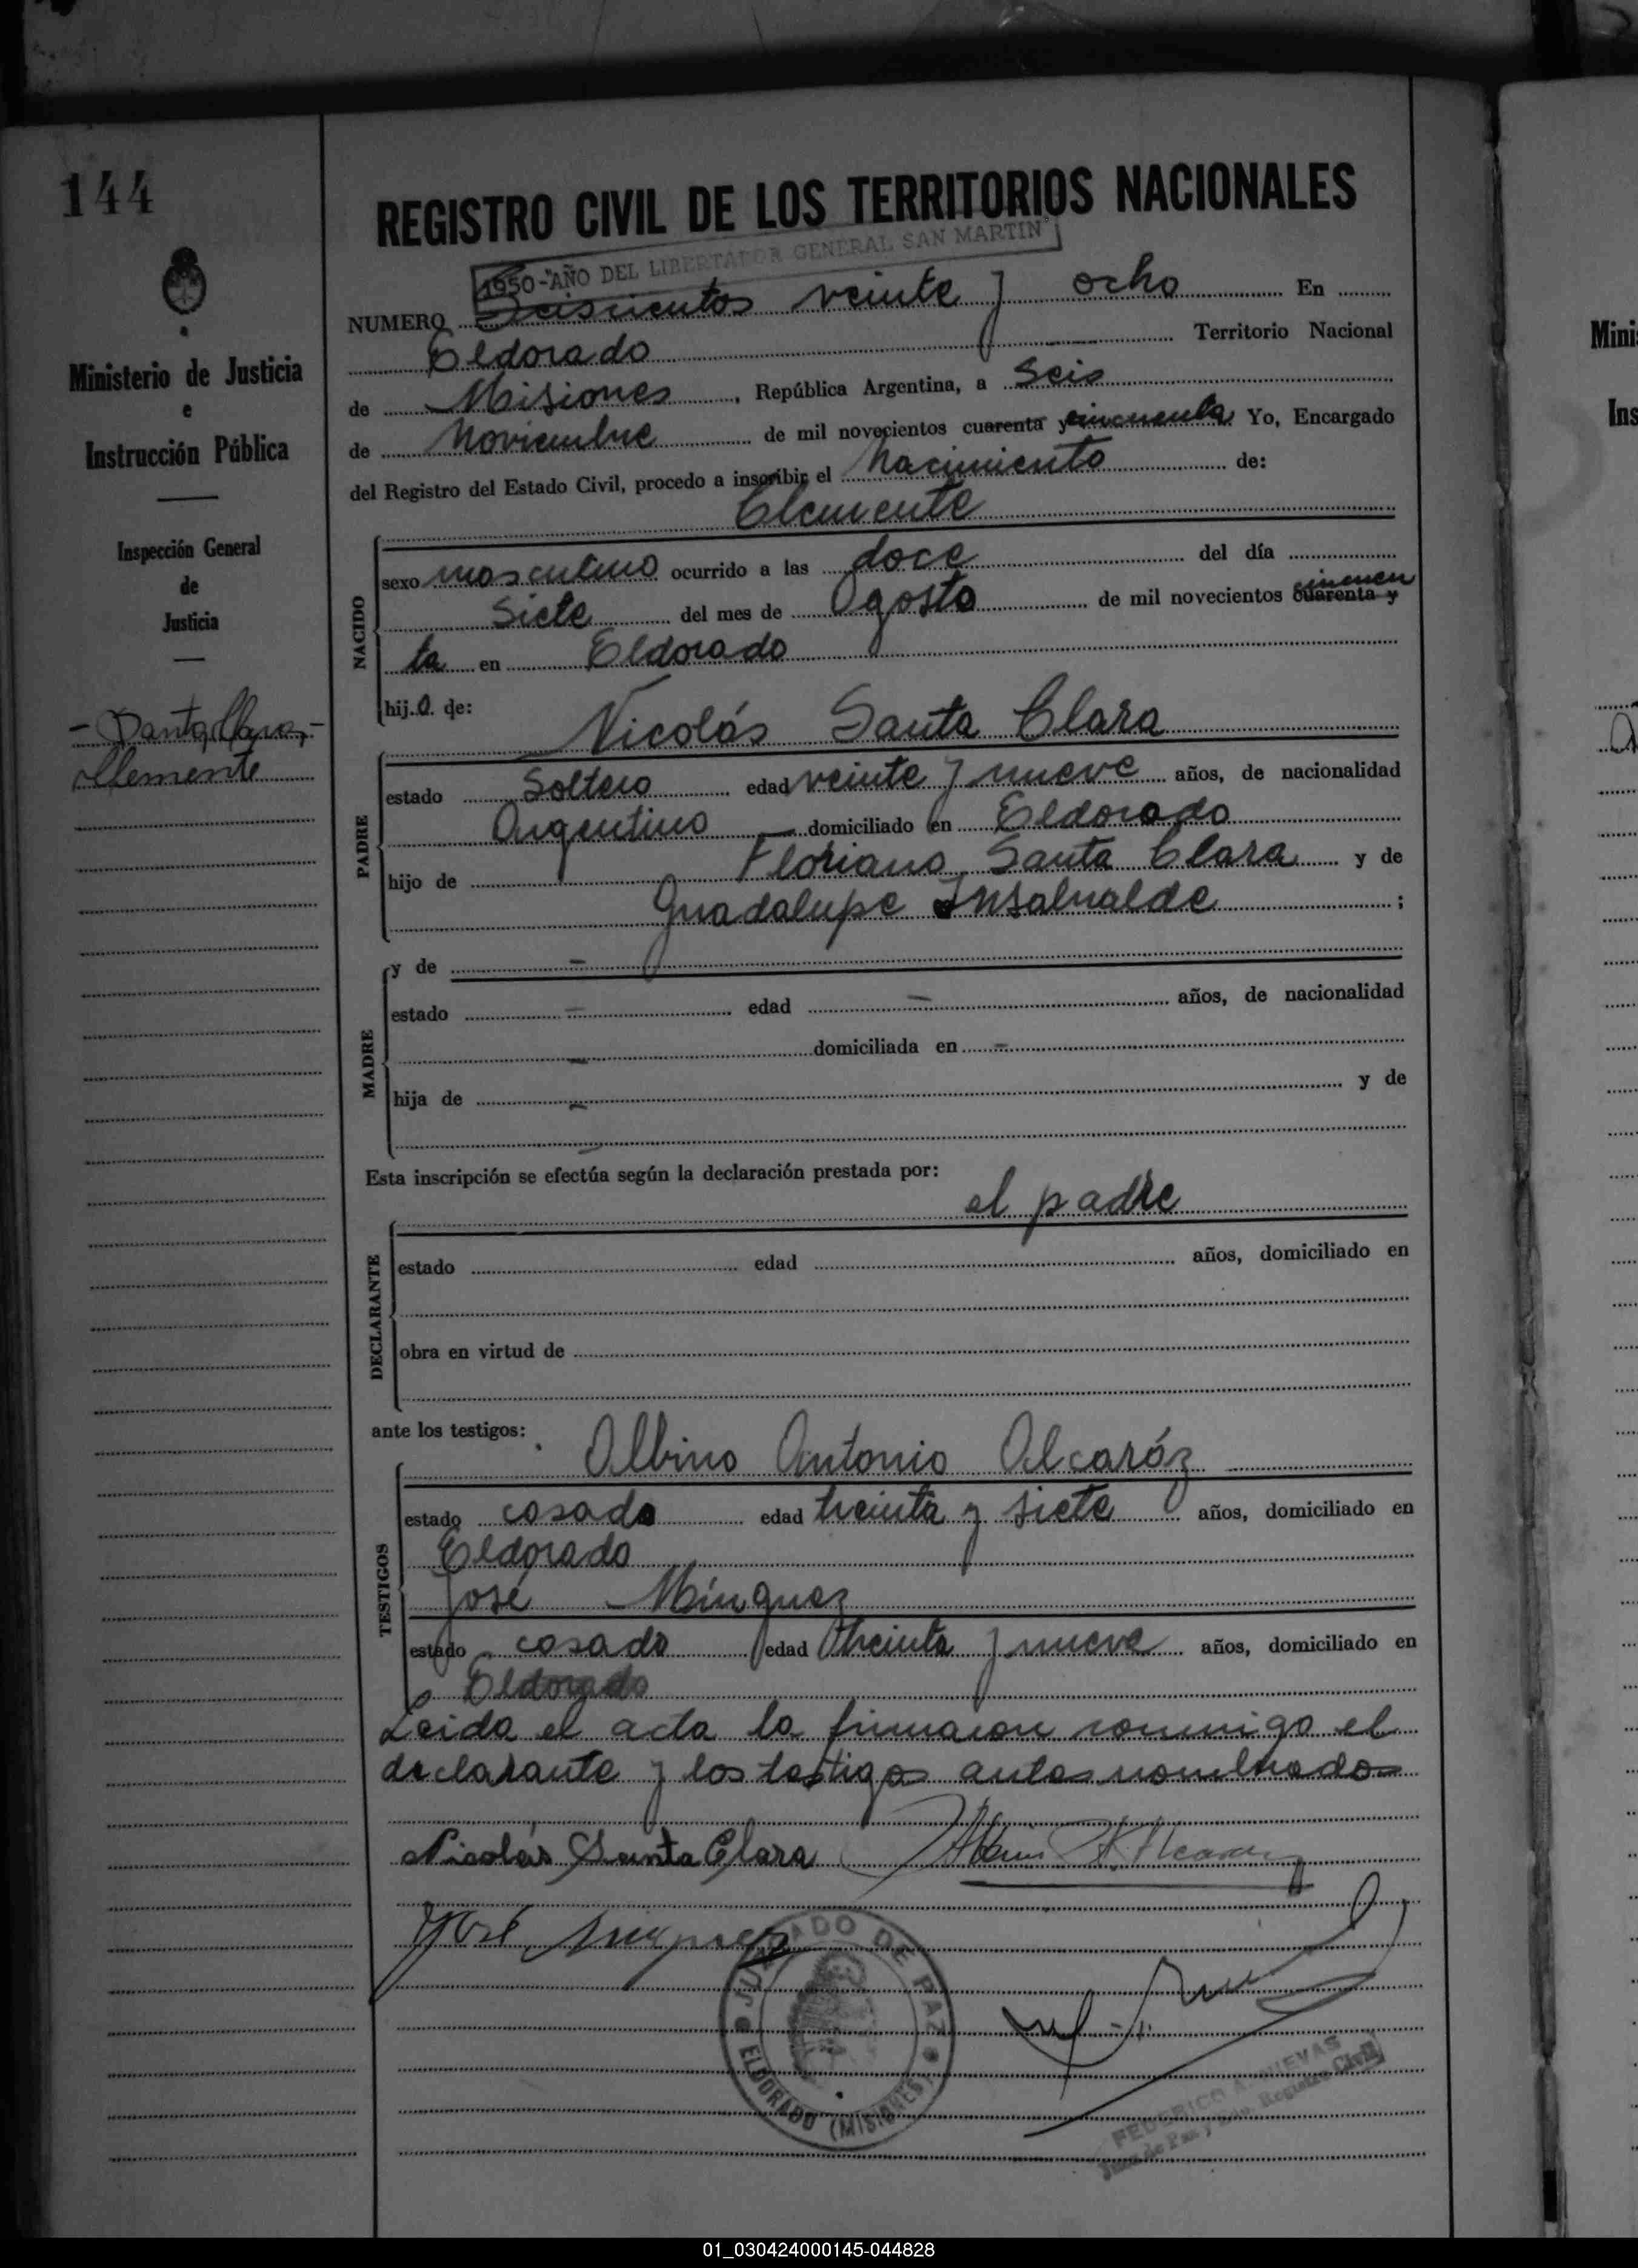 144
REGISTRO CIVIL DE LOS TERRITORIOS NACIONALES
1950-"AÑO DEL LIBERTADOR GENERAL SAN MARTIN"
NUMERO Seiscientos veinte y ocho En
Eldorado Territorio Nacional
de Misiones, República Argentina, a Seis
de Noviembre de mil novecientos cuarenta y cincuenta Yo, Encargado
del Registro del Estado Civil, procedo a inscribir el Nacimiento de:
Clemente
NACIDO
sexo masculino ocurrido a las doce del día
Siete del mes de Agosto de mil novecientos cuarenta y cincuen
ta en Eldorado
hijo de:
Nicolás Santa Clara
PADRE
estado Soltero edad veinte y nueve años, de nacionalidad
Argentino domiciliado en Eldorado
hijo de Floriano Santa Clara y de
Guadalupe Insabralde ;
MADRE
y de -
estado - edad - años, de nacionalidad
- domiciliada en -
hija de - y de
-
Esta inscripción se efectúa según la declaración prestada por:
el padre
DECLARANTE
estado edad años, domiciliado en
obra en virtud de
ante los testigos:
Albino Antonio Alcaróz
TESTIGOS
estado casado edad treinta y siete años, domiciliado en
Eldorado
José Mínguez
estado casado edad treinta y nueve años, domiciliado en
Eldorado
Leida el acta la firmaron conmigo el
declarante y los testigos antes nombrados
Nicolás Santa Clara
José Minguez
JUZGADO DE PAZ
ELDORADO (MISIONES)
FEDERICO A. CUEVAS
Juez de Paz y Edo. Registro Civil
Ministerio de Justicia
e
Instrucción Pública
Inspección General
de
Justicia
- Santa Clara, -
Clemente
Mini
Ins
01_030424000145-044828